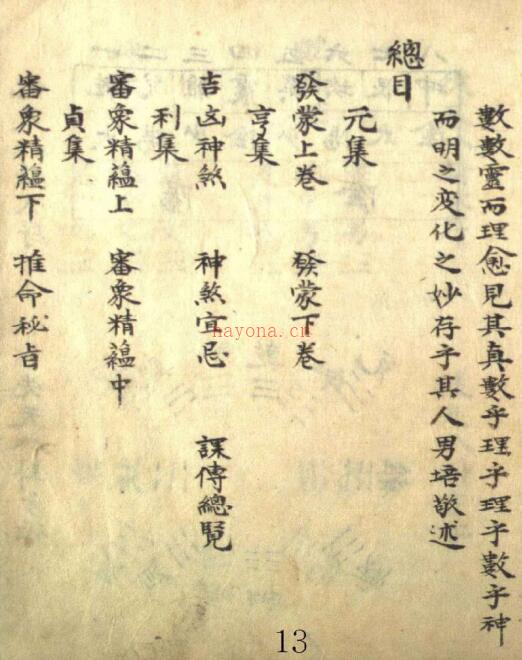 數數靈而理愈見其真數乎理乎理乎數乎神
而明之変化之妙存乎其人男培敬述
總目
元集
發蒙上卷 發蒙下卷
亨集
吉凶神煞 神煞宜忌 課傳總覽
利集
審象精蘊上 審象精蘊中
貞集
審象精蘊下 推命秘旨
hayona.cn
13